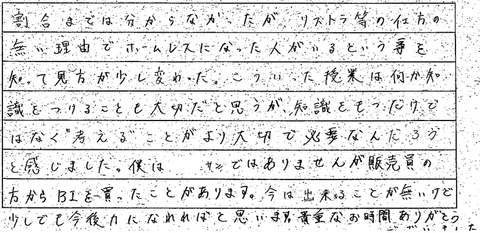 割合までは分からなかったが、リストラ等の仕方の
無い理由でホームレスになった人がいるという事を
知って見方が少し変わった。こういった授業は何か知
識をつけることも大切だと思うが、知識をもつだけで
はなく"考える"ことがより大切で必要なんだろう
と感じました。僕は ではありませんが販売員の
方からBIを買ったことがあります。今は出来ることが無いけど
少しでも今後力になれればと思います。貴重なお時間ありがとう
ございました